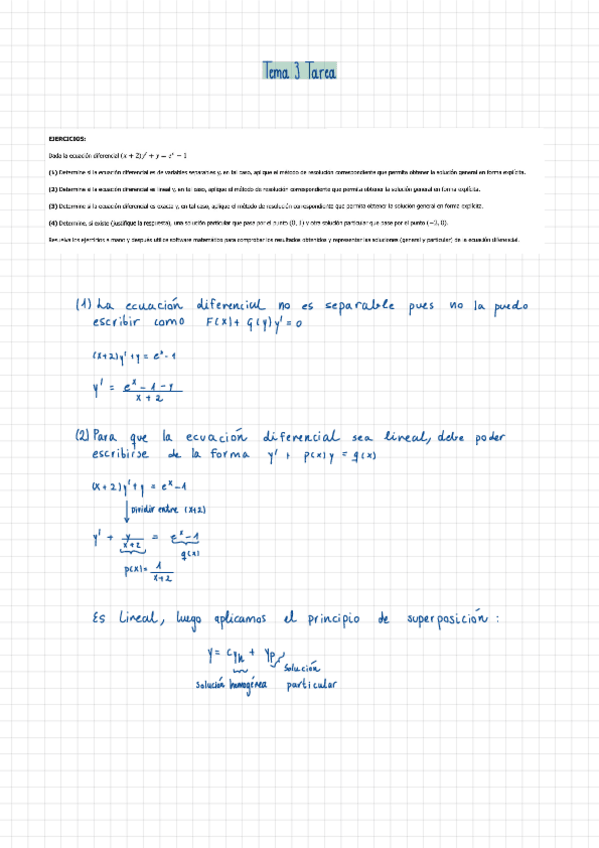 Tema 3 Tarea
EJERCICIOS:
Dada la ecuación diferencial (x + 2)y' + y = eˣ − 1
(1) Determine si la ecuación diferencial es de variables separables y, en tal caso, aplique el método de resolución correspondiente que permita obtener la solución general en forma explícita.
(2) Determine si la ecuación diferencial es lineal y, en tal caso, aplique el método de resolución correspondiente que permita obtener la solución general en forma explícita.
(3) Determine si la ecuación diferencial es exacta y, en tal caso, aplique el método de resolución correspondiente que permita obtener la solución general en forma explícita.
(4) Determine, si existe (justifique la respuesta), una solución particular que pase por el punto (0, 1) y otra solución particular que pase por el punto
Resuelva los ejercicios a mano y después utilice software matemático para comprobar los resultados obtenidos y representar las soluciones (general y particular) de la ecuación diferencial.
(1) La ecuación diferencial no es separable pues no la puedo
escribir como F(x) + G(y)y' = 0
(x+2)y' + y = eˣ - 1
y' = (eˣ - 1 - y)/(x + 2)
(2) Para que la ecuación diferencial sea lineal, debe poder
escribirse de la forma y' + p(x)y = q(x)
(x + 2)y' + y = eˣ - 1
Dividir entre (x+2)
y' + y/(x+2) = eˣ - 1
q(x)
p(x) = 1/(x+2)
Es lineal, luego aplicamos el principio de superposición:
y = cyh + yp
solución
solución homogénea particular